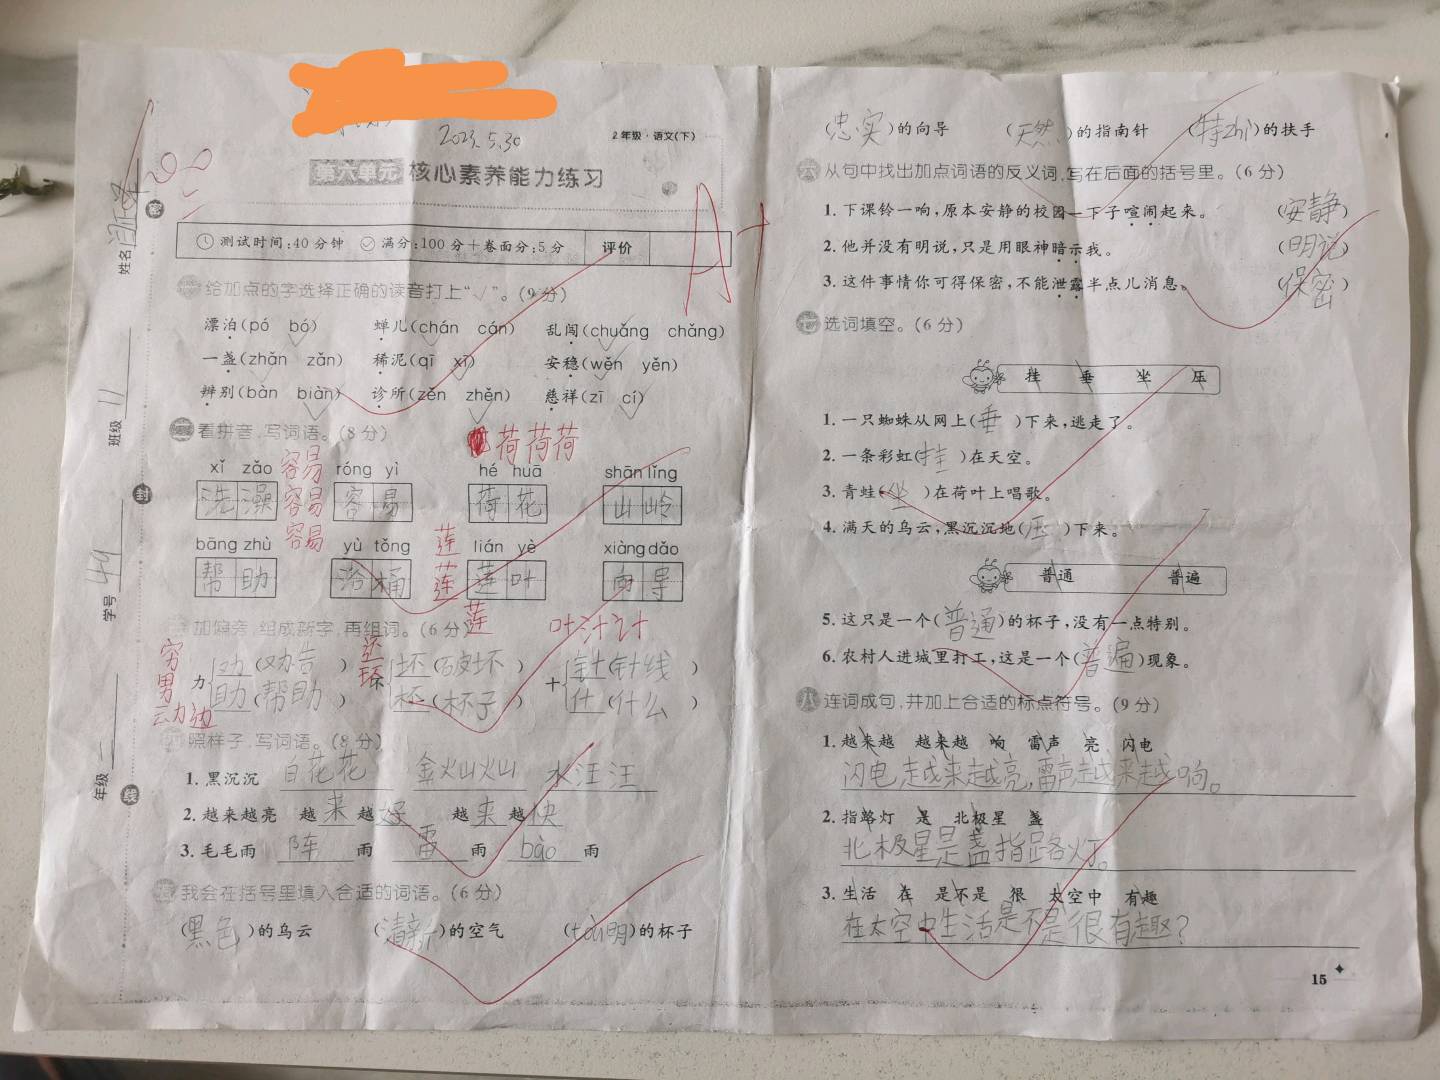 2023.5.30
2年级·语文(下)
第六单元 核心素养能力练习
98
A+
姓名
班级 11
学号 49
年级 二
密
封
线
测试时间:40分钟 满分:100分+卷面分:5分 评价
一 给加点的字选择正确的读音打上“√”。(9分)
漂泊(pó bó) 蝉儿(chán cán) 乱闯(chuǎng chǎng)
一盏(zhǎn zǎn) 稀泥(qī xī) 安稳(wěn yěn)
辨别(bàn biàn) 诊所(zěn zhěn) 慈祥(zī cí)
二 看拼音,写词语。(8分)
荷荷荷
xǐ zǎo róng yì hé huā shān lǐng
洗澡 容易 荷花 山岭
容易
容易
容易
bāng zhù yù tǒng lián yè xiàng dǎo
帮助 浴桶 莲叶 向导
莲
莲
莲
三 加偏旁,组成新字,再组词。(6分)
叶汁计
穷
男
动 边
还
环
力 劝(劝告) 不 坏(破坏) 十 针(针线)
助(帮助) 杯(杯子) 什(什么)
四 照样子,写词语。(8分)
1. 黑沉沉 白花花 金灿灿 水汪汪
2. 越来越亮 越来越好 越来越快
3. 毛毛雨 阵雨 雷雨 bào雨
五 我会在括号里填入合适的词语。(6分)
(黑色)的乌云 (清新)的空气 (tòu明)的杯子
(忠实)的向导 (天然)的指南针 (特别)的扶手
六 从句中找出加点词语的反义词,写在后面的括号里。(6分)
1. 下课铃一响,原本安静的校园一下子喧闹起来。 (安静)
2. 他并没有明说,只是用眼神暗示我。 (明说)
3. 这件事情你可得保密,不能泄露半点儿消息。 (保密)
七 选词填空。(6分)
挂 垂 坐 压
1. 一只蜘蛛从网上(垂)下来,逃走了。
2. 一条彩虹(挂)在天空。
3. 青蛙(坐)在荷叶上唱歌。
4. 满天的乌云,黑沉沉地(压)下来。
普通 普遍
5. 这只是一个(普通)的杯子,没有一点特别。
6. 农村人进城里打工,这是一个(普遍)现象。
八 连词成句,并加上合适的标点符号。(9分)
1. 越来越 越来越 响 雷声 亮 闪电
闪电越来越亮,雷声越来越响。
2. 指路灯 是 北极星 盏
北极星是盏指路灯。
3. 生活 在 是不是 很 太空中 有趣
在太空中生活是不是很有趣?
15